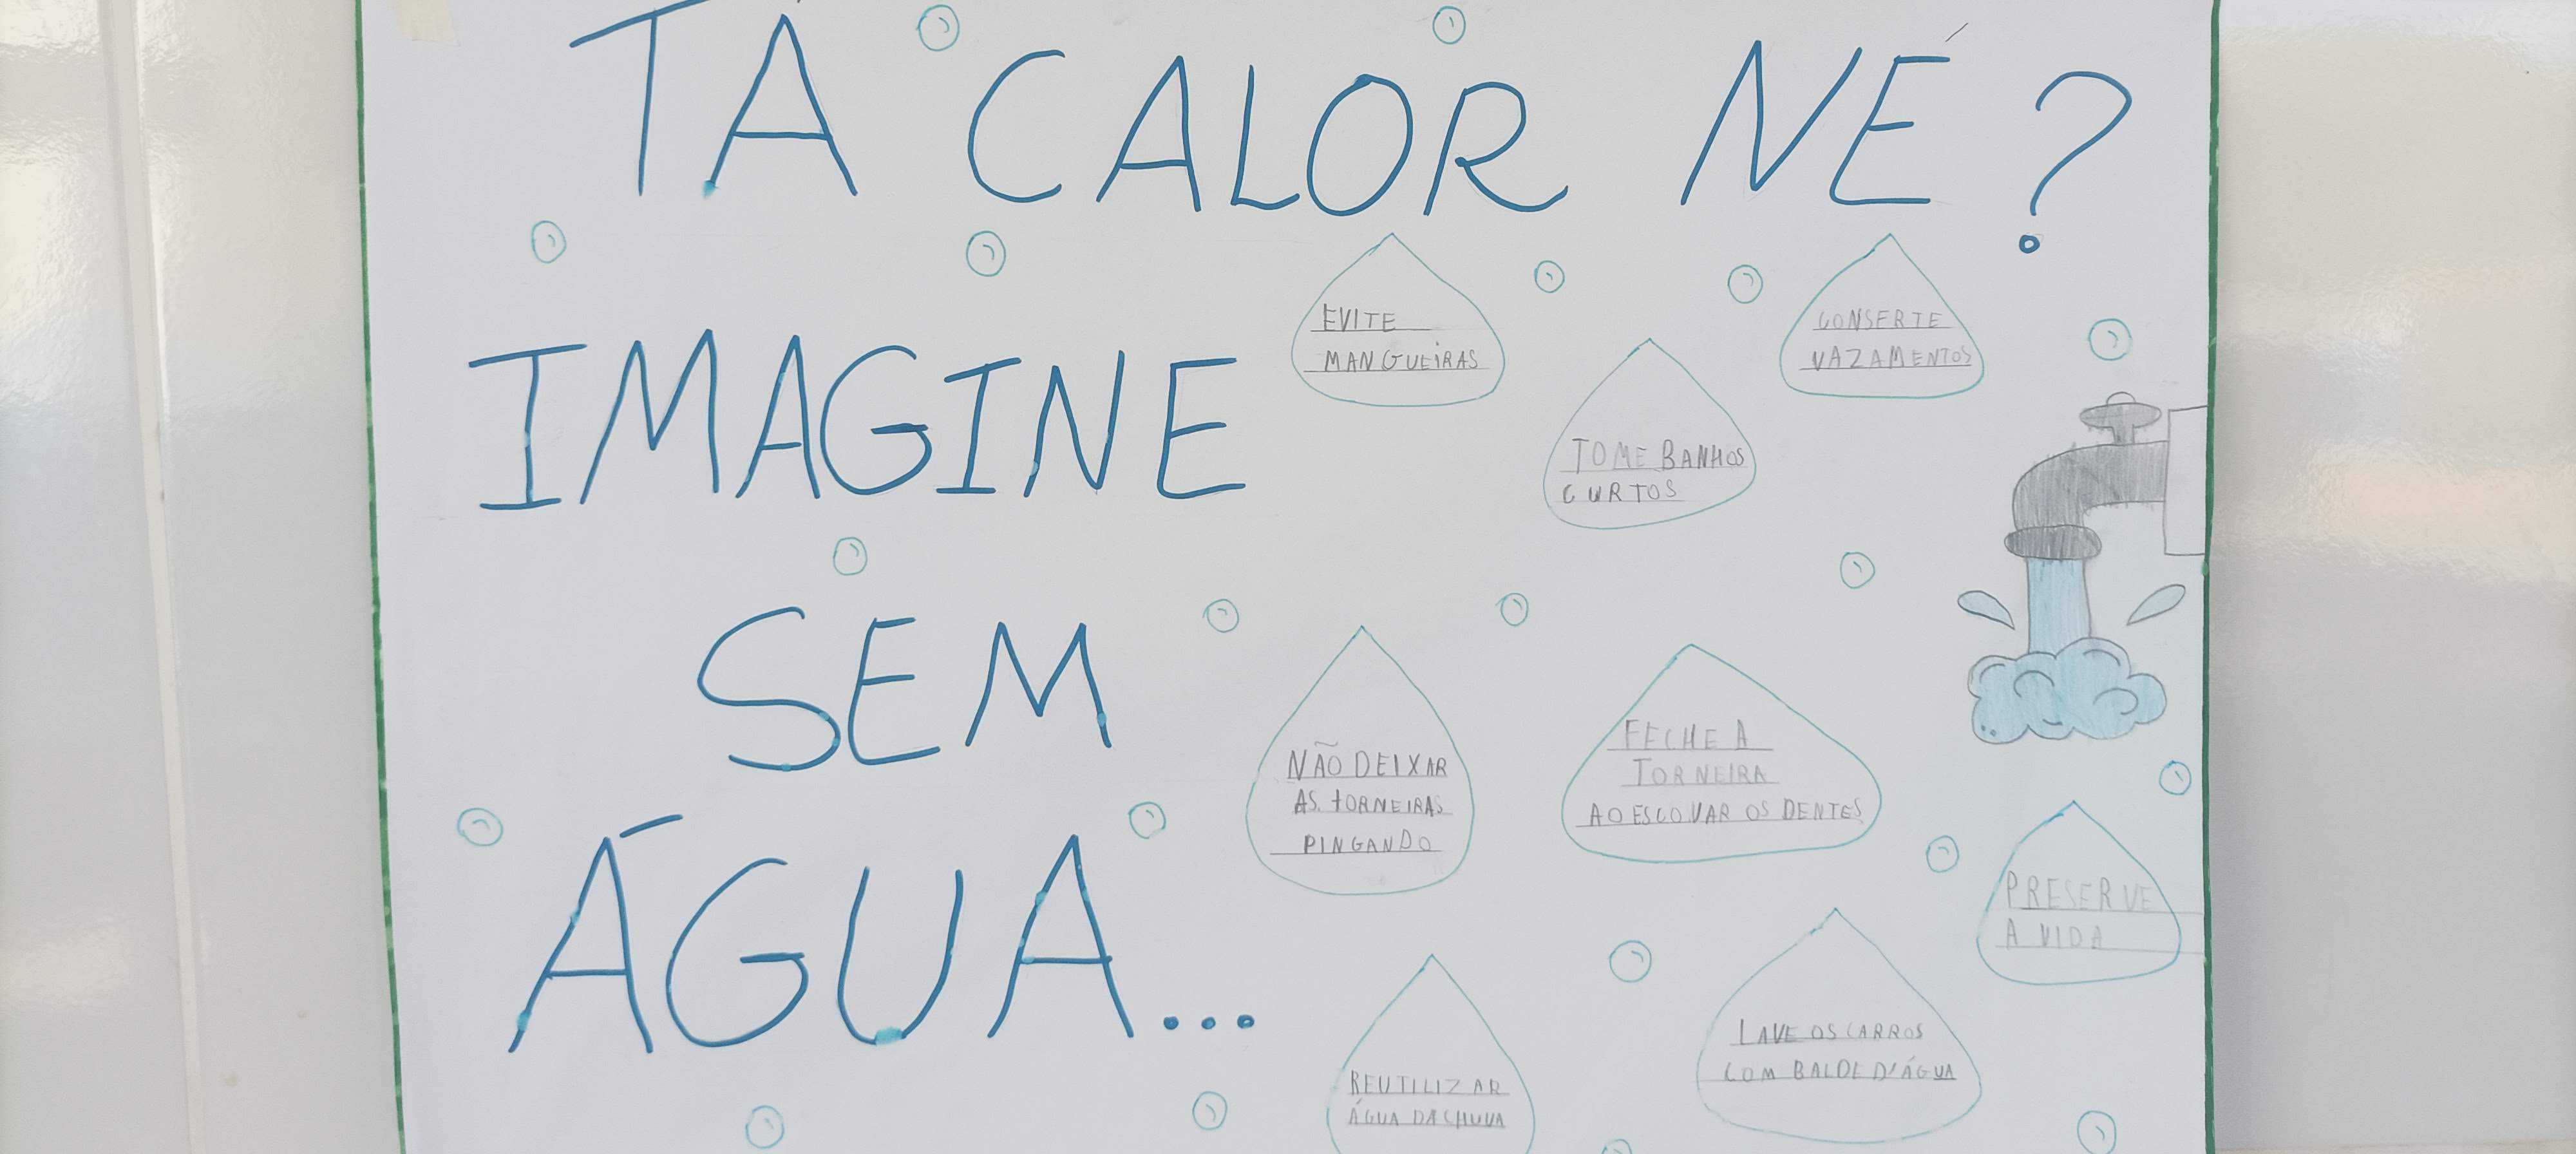 TÁ CALOR NÉ?
IMAGINE
SEM
ÁGUA...
EVITE
MANGUEIRAS
CONSERTE
VAZAMENTOS
TOME BANHOS
CURTOS
NÃO DEIXAR
AS TORNEIRAS
PINGANDO
FECHE A
TORNEIRA
AO ESCOVAR OS DENTES
PRESERVE
A VIDA
LAVE OS CARROS
COM BALDE D'ÁGUA
REUTILIZAR
ÁGUA DA CHUVA